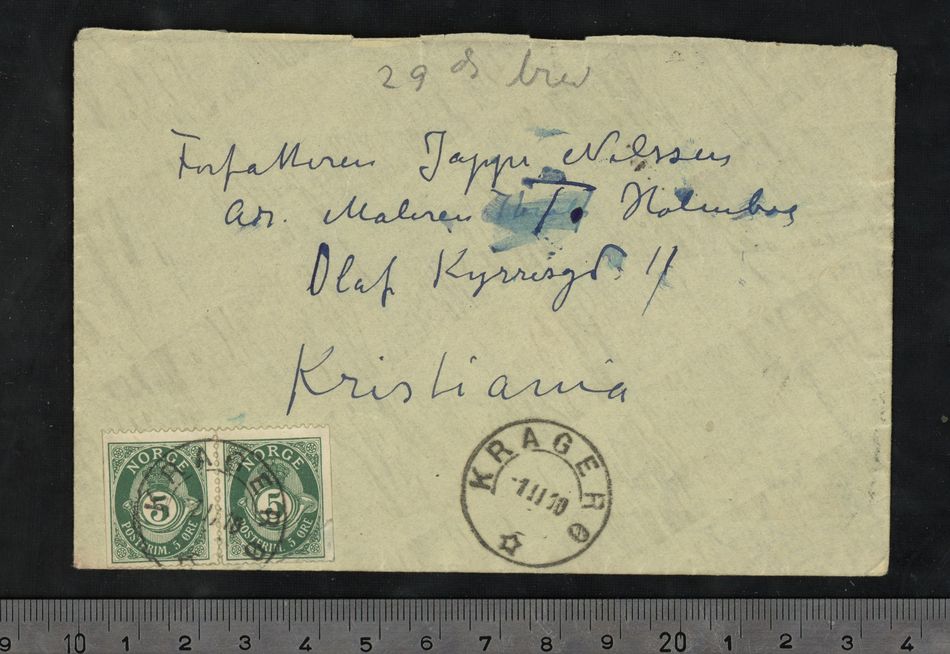 29 ds brev
Forfatteren Jappe Nilssen
adr. Maleren Th. T. Holmboe
Olaf Kyrresgd. 11
Kristiania
NORGE
5
POSTFRIM. 5 ØRE
NORGE
5
POSTFRIM. 5 ØRE
KRAGERØ
KRAGERØ
-1 II 10
9 10 1 2 3 4 5 6 7 8 9 20 1 2 3 4